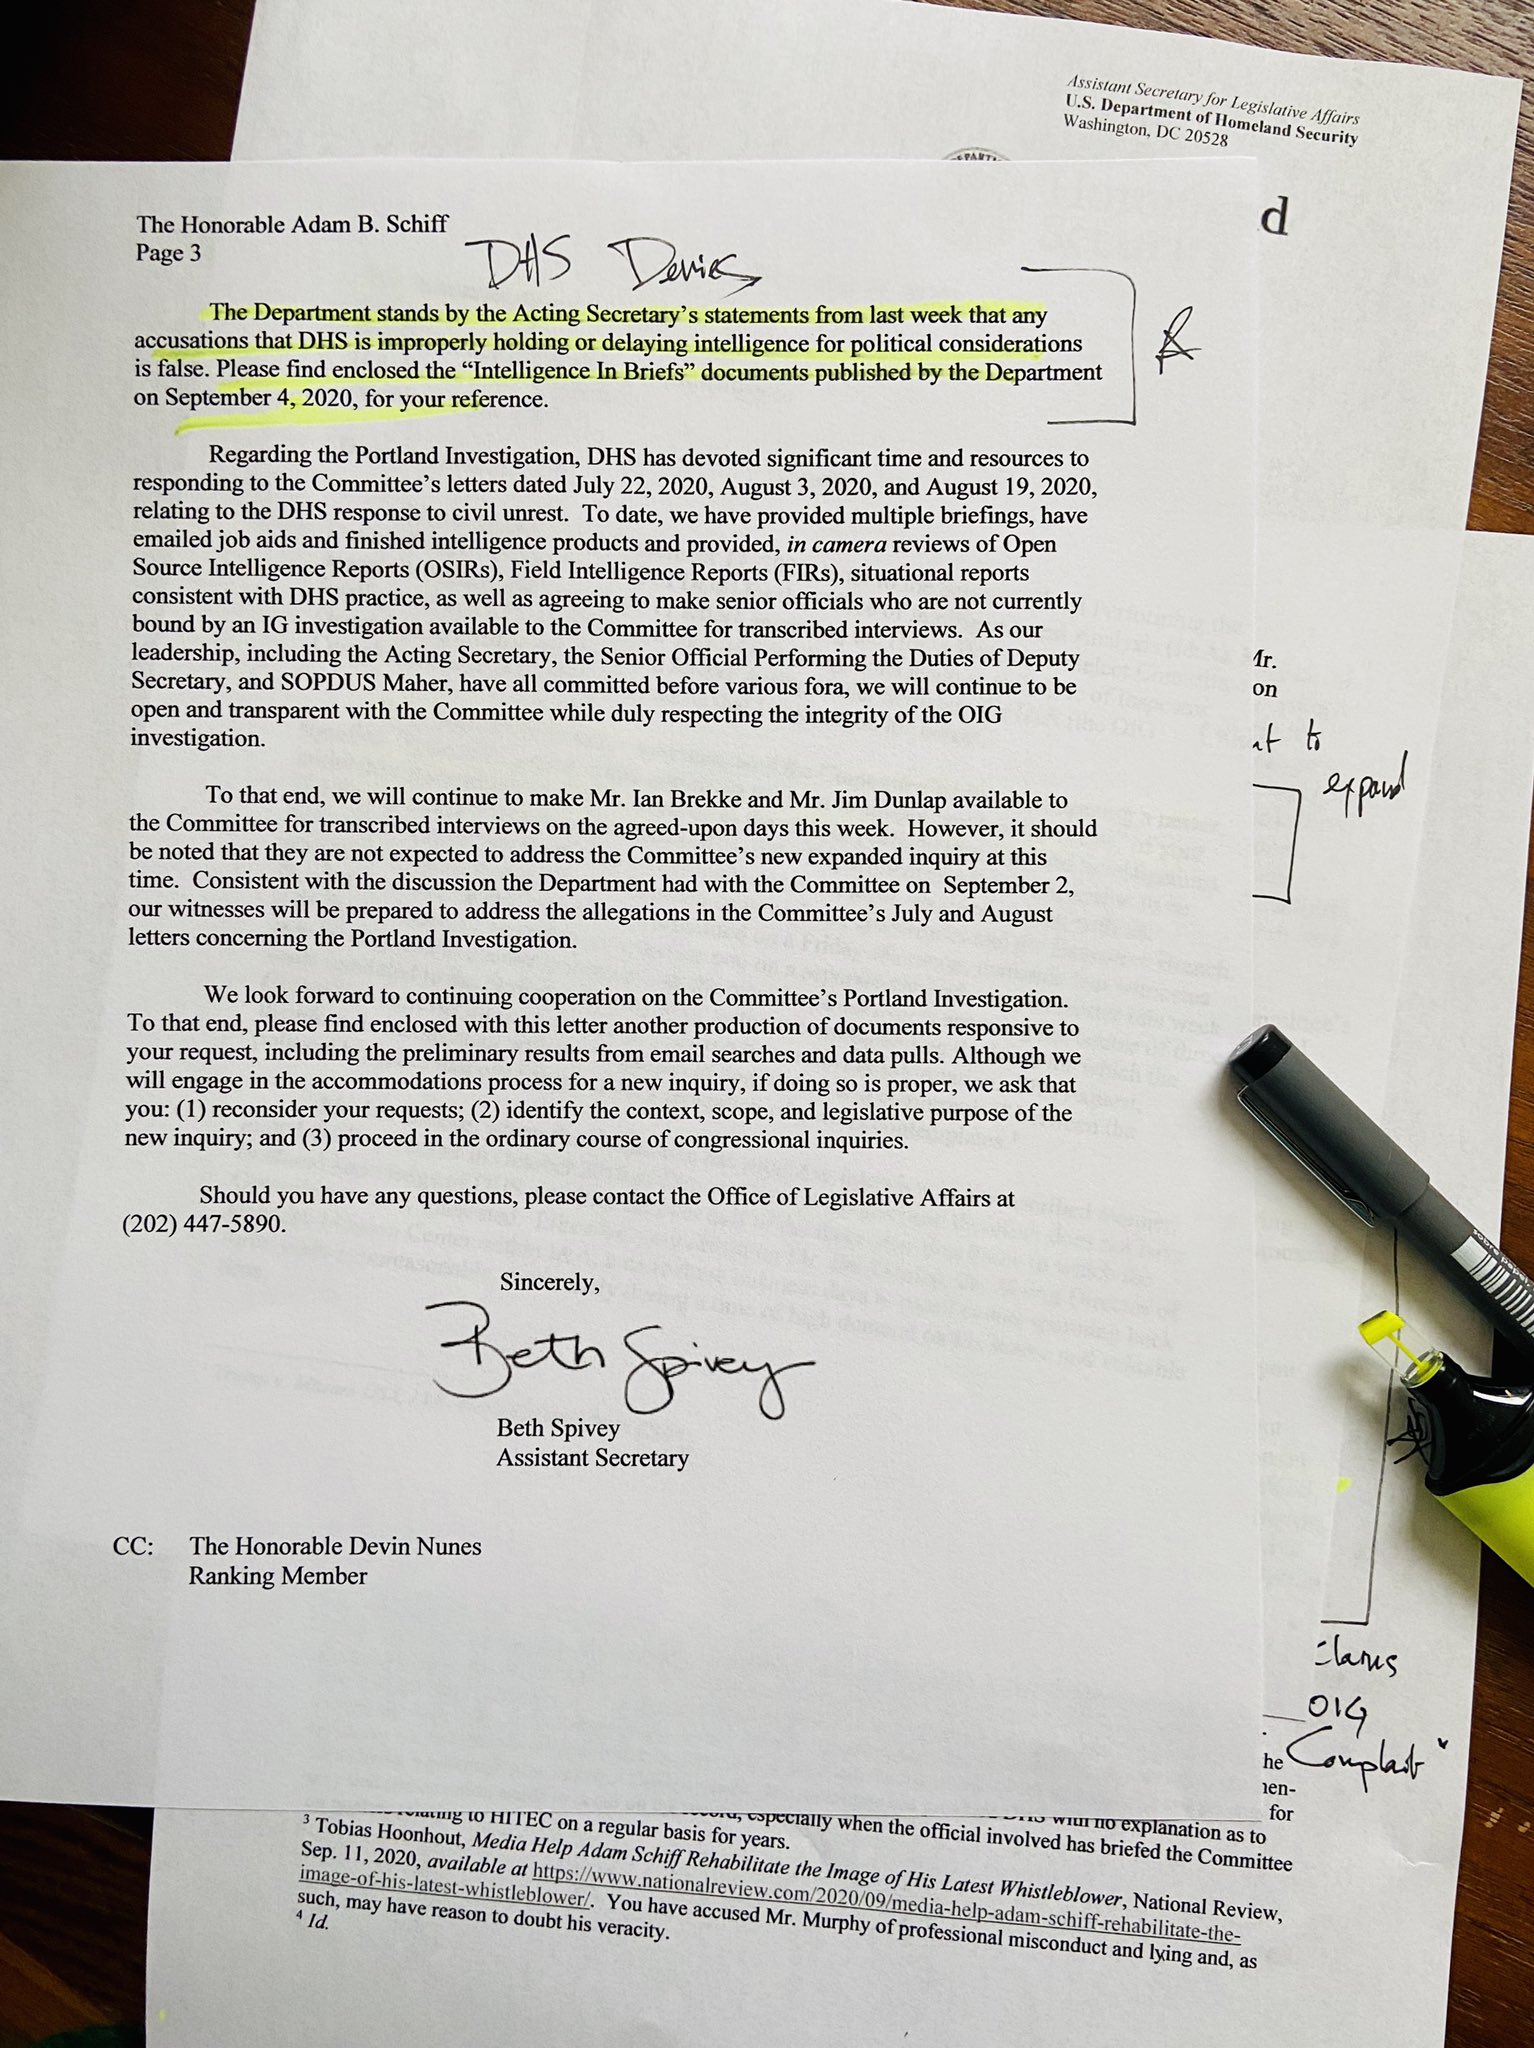 Assistant Secretary for Legislative Affairs
U.S. Department of Homeland Security
Washington, DC 20528
d
The Honorable Adam B. Schiff
Page 3
DHS Denies
The Department stands by the Acting Secretary's statements from last week that any
accusations that DHS is improperly holding or delaying intelligence for political considerations
is false. Please find enclosed the "Intelligence In Briefs" documents published by the Department
on September 4, 2020, for your reference.
&
Regarding the Portland Investigation, DHS has devoted significant time and resources to
responding to the Committee's letters dated July 22, 2020, August 3, 2020, and August 19, 2020,
relating to the DHS response to civil unrest. To date, we have provided multiple briefings, have
emailed job aids and finished intelligence products and provided, in camera reviews of Open
Source Intelligence Reports (OSIRs), Field Intelligence Reports (FIRs), situational reports
consistent with DHS practice, as well as agreeing to make senior officials who are not currently
bound by an IG investigation available to the Committee for transcribed interviews. As our
leadership, including the Acting Secretary, the Senior Official Performing the Duties of Deputy
Secretary, and SOPDUS Maher, have all committed before various fora, we will continue to be
open and transparent with the Committee while duly respecting the integrity of the OIG
investigation.
Mr.
on
at to
expand
To that end, we will continue to make Mr. Ian Brekke and Mr. Jim Dunlap available to
the Committee for transcribed interviews on the agreed-upon days this week. However, it should
be noted that they are not expected to address the Committee's new expanded inquiry at this
time. Consistent with the discussion the Department had with the Committee on September 2,
our witnesses will be prepared to address the allegations in the Committee's July and August
letters concerning the Portland Investigation.
We look forward to continuing cooperation on the Committee's Portland Investigation.
To that end, please find enclosed with this letter another production of documents responsive to
your request, including the preliminary results from email searches and data pulls. Although we
will engage in the accommodations process for a new inquiry, if doing so is proper, we ask that
you: (1) reconsider your requests; (2) identify the context, scope, and legislative purpose of the
new inquiry; and (3) proceed in the ordinary course of congressional inquiries.
Should you have any questions, please contact the Office of Legislative Affairs at
(202) 447-5890.
Sincerely,
Beth Spivey
Beth Spivey
Assistant Secretary
CC: The Honorable Devin Nunes
Ranking Member
OIG
he
nen-
for
with no explanation as to
relating to HITEC on a regular basis for years.
especially when the official involved has briefed the Committee
3 Tobias Hoonhout, Media Help Adam Schiff Rehabilitate the Image of His Latest Whistleblower, National Review,
Sep. 11, 2020, available at https://www.nationalreview.com/2020/09/media-help-adam-schiff-rehabilitate-the-
image-of-his-latest-whistleblower/. You have accused Mr. Murphy of professional misconduct and lying and, as
such, may have reason to doubt his veracity.
4 Id.